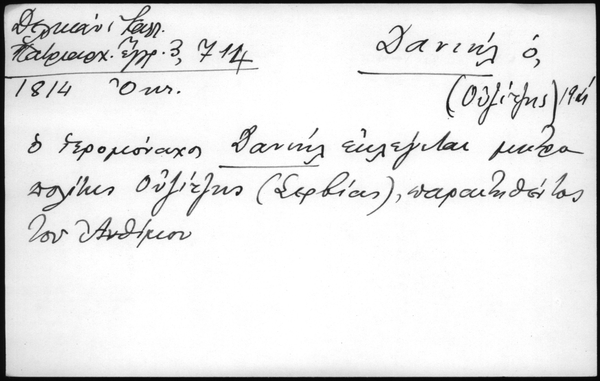 Δελικάνι Καλ.
Πατριαρχ. Ἔγγρ. 3, 714
1814 Ὀκτ.
Δανιήλ ὁ,
(Οὐζίτζης)
ὁ ἱερομόναχος Δανιήλ ἐκλέγεται μητρο
πολίτης Οὐζίτζης (Σερβίας), παραιτηθέντος
τοῦ Ἀνθίμου